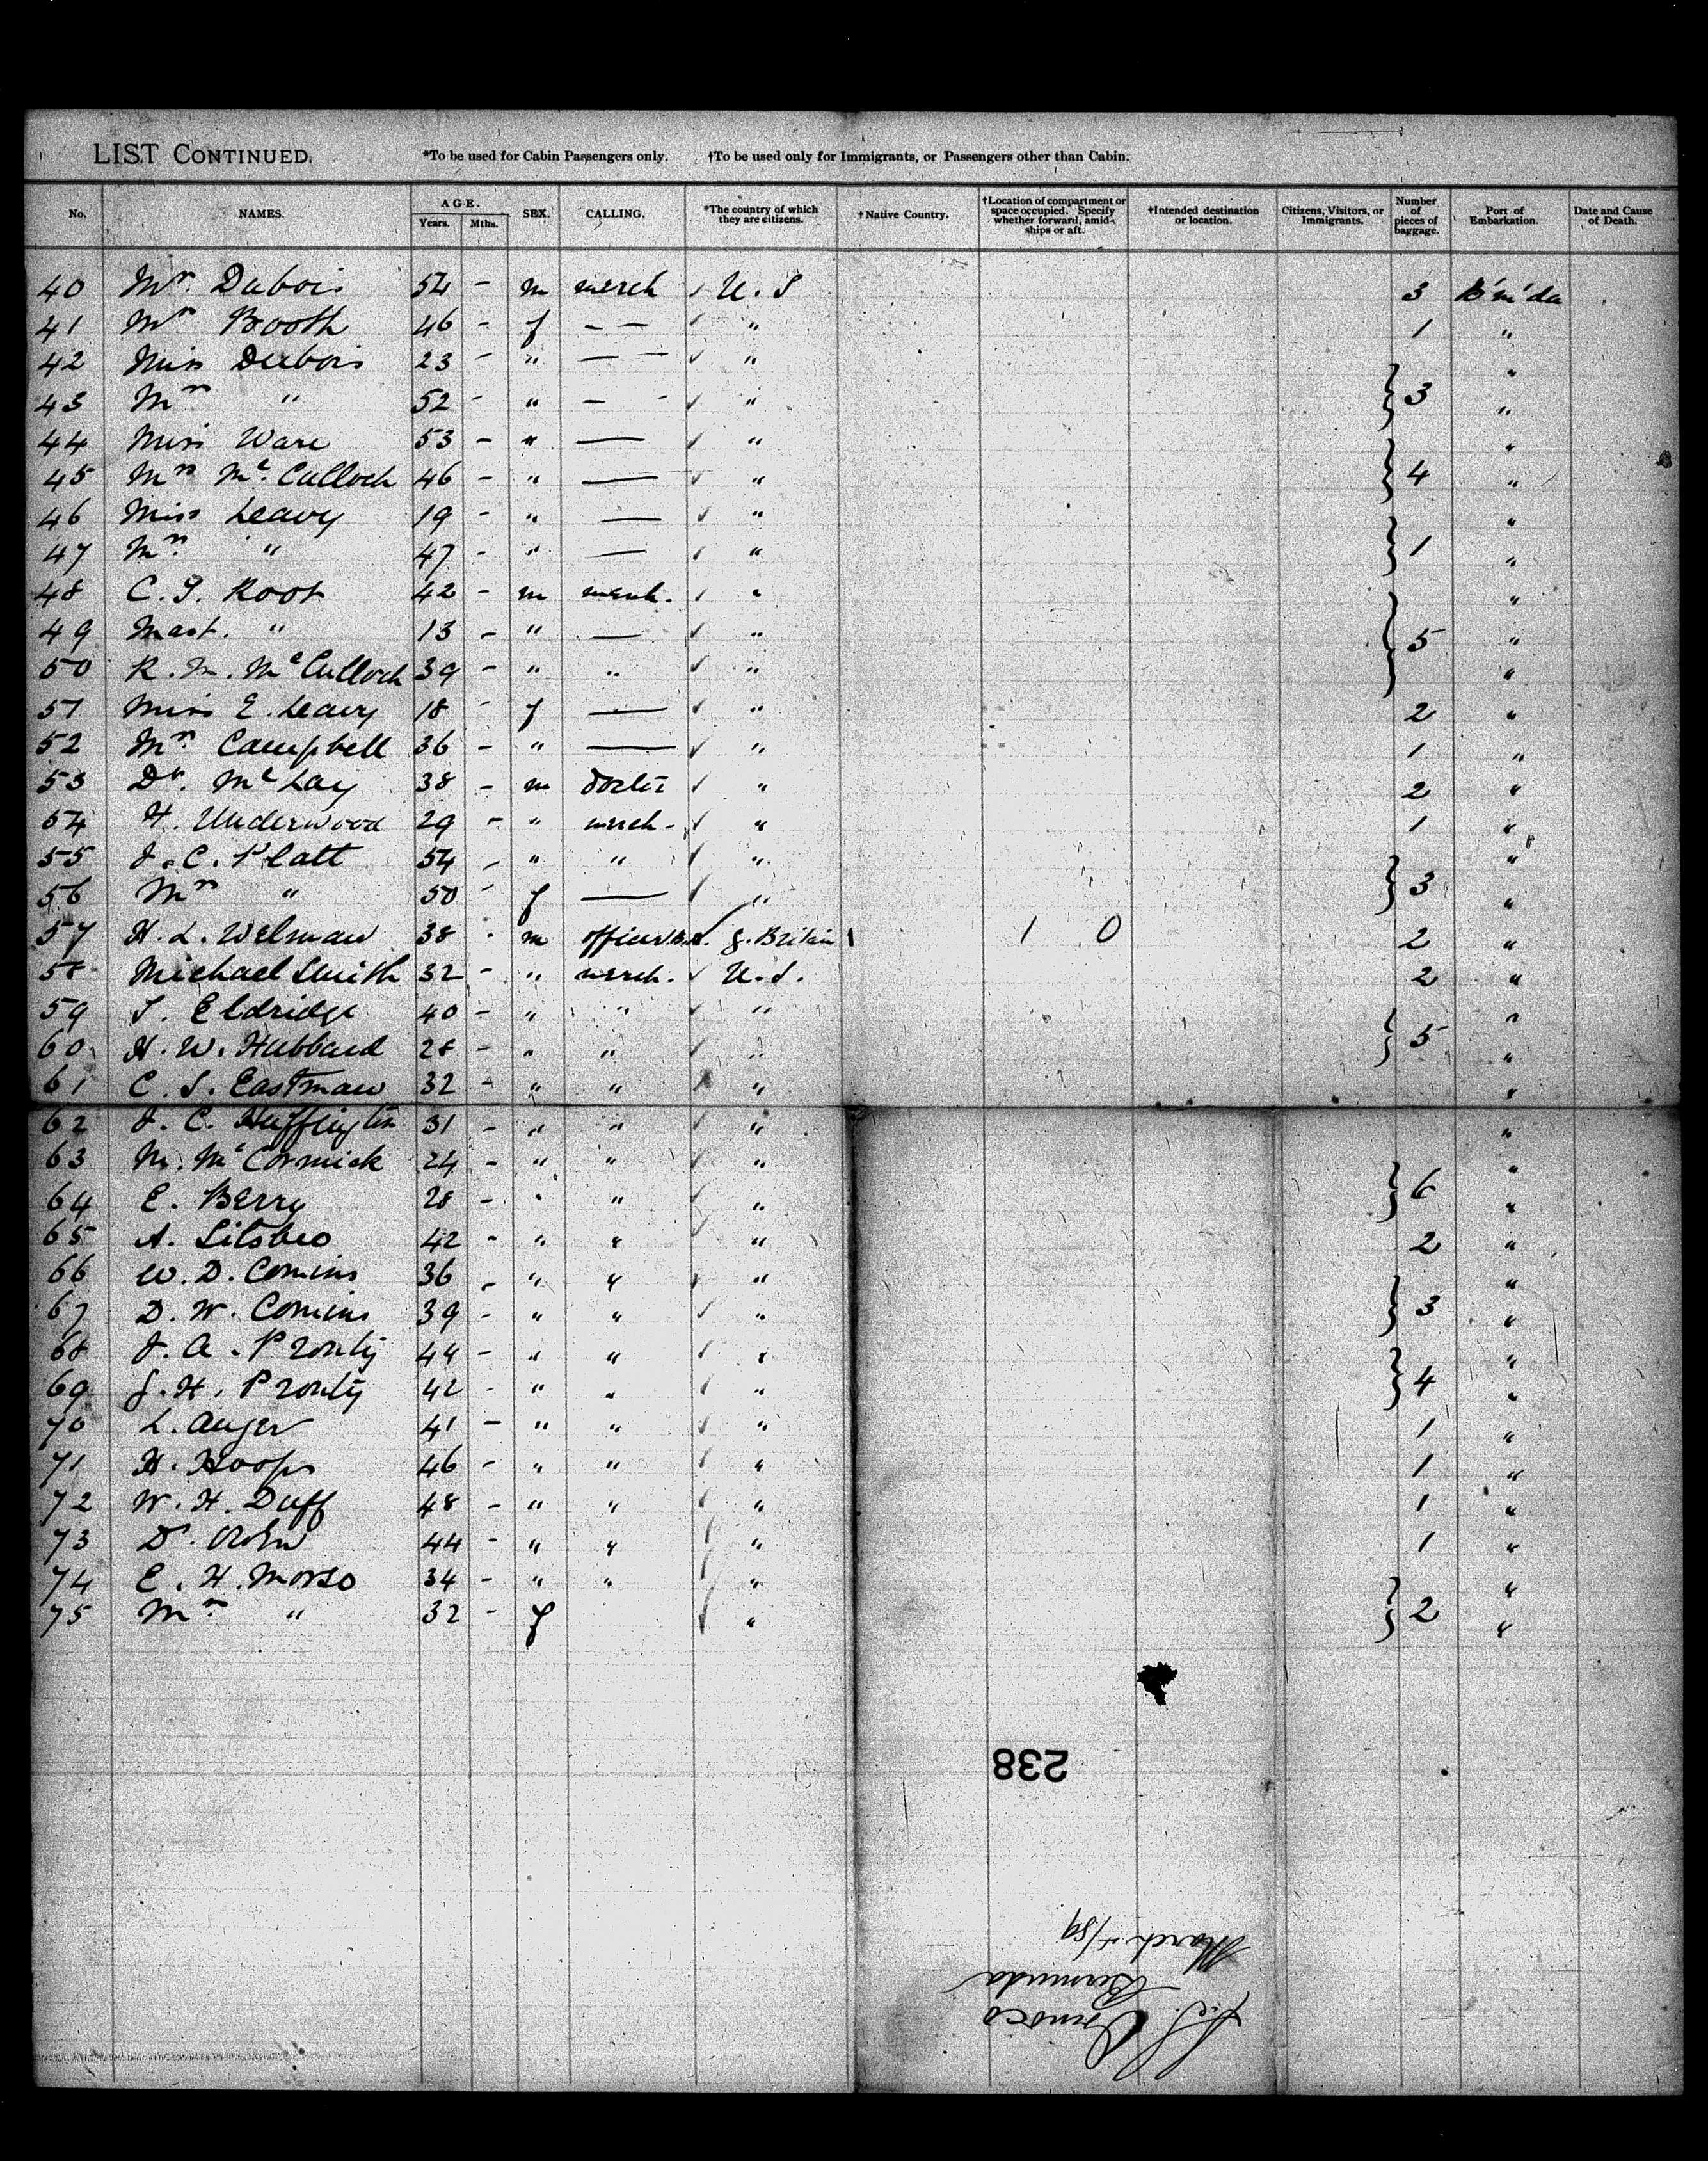 LIST CONTINUED. *To be used for Cabin Passengers only. †To be used only for Immigrants, or Passengers other than Cabin.
No. NAMES. AGE. Years. Mths. SEX. CALLING. *The country of which they are citizens. †Native Country. †Location of compartment or space occupied. Specify whether forward, amid-ships or aft. †Intended destination or location. Citizens, Visitors, or Immigrants. Number of pieces of baggage. Port of Embarkation. Date and Cause of Death.
40 Mr. Dubois 54 - m merch U.S 3 B'm'da
41 Mrs Booth 46 - f - - " 1 "
42 Miss Dubois 23 - " - - " "
43 Mrs " 52 - " - - " 3 "
44 Miss Ware 53 - " — " "
45 Mrs McCulloch 46 - " — " 4 "
46 Miss Leavy 19 - " — " "
47 Mrs. " 47 - " — " 1 "
48 C. G. Root 42 - m merch. " "
49 Mast. " 13 - " — " 5 "
50 R. M. McCulloch 39 - " " " "
51 Miss E. Leavy 18 - f — " 2 "
52 Mrs. Campbell 36 - " — " 1 "
53 Dr. McLay 38 - m doctor " 2 "
54 H. Underwood 29 - " merch- " 1 "
55 J. C. Platt 54 - " " " "
56 Mrs " 50 - f — " 3 "
57 H. L. Welman 38 - m officer G. Britain 1 0 2 "
58 Michael Smith 32 - " merch. U.S. 2 "
59 T. Eldridge 40 - " " " "
60 H. W. Hubbard 28 - " " " 5 "
61 C. S. Eastman 32 - " " " "
62 J. C. Huffington 31 - " " " "
63 M. McCormick 24 - " " " "
64 E. Berry 28 - " " " 6 "
65 A. 42 - " " " 2 "
66 W. D. Comins 36 - " " " "
67 D. W. Comins 39 - " " " 3 "
68 J. A. Prouty 44 - " " " "
69 G. H. Prouty 42 - " " " 4 "
70 L. Auger 41 - " " " 1 "
71 H. Hoops 46 - " " " 1 "
72 W. H. Duff 48 - " " " 1 "
73 Dr. 44 - " " " 1 "
74 E. H. Morse 34 - " " " "
75 Mrs " 32 - f " 2 "
238
S.S. Orinoco
Bermuda
March /89